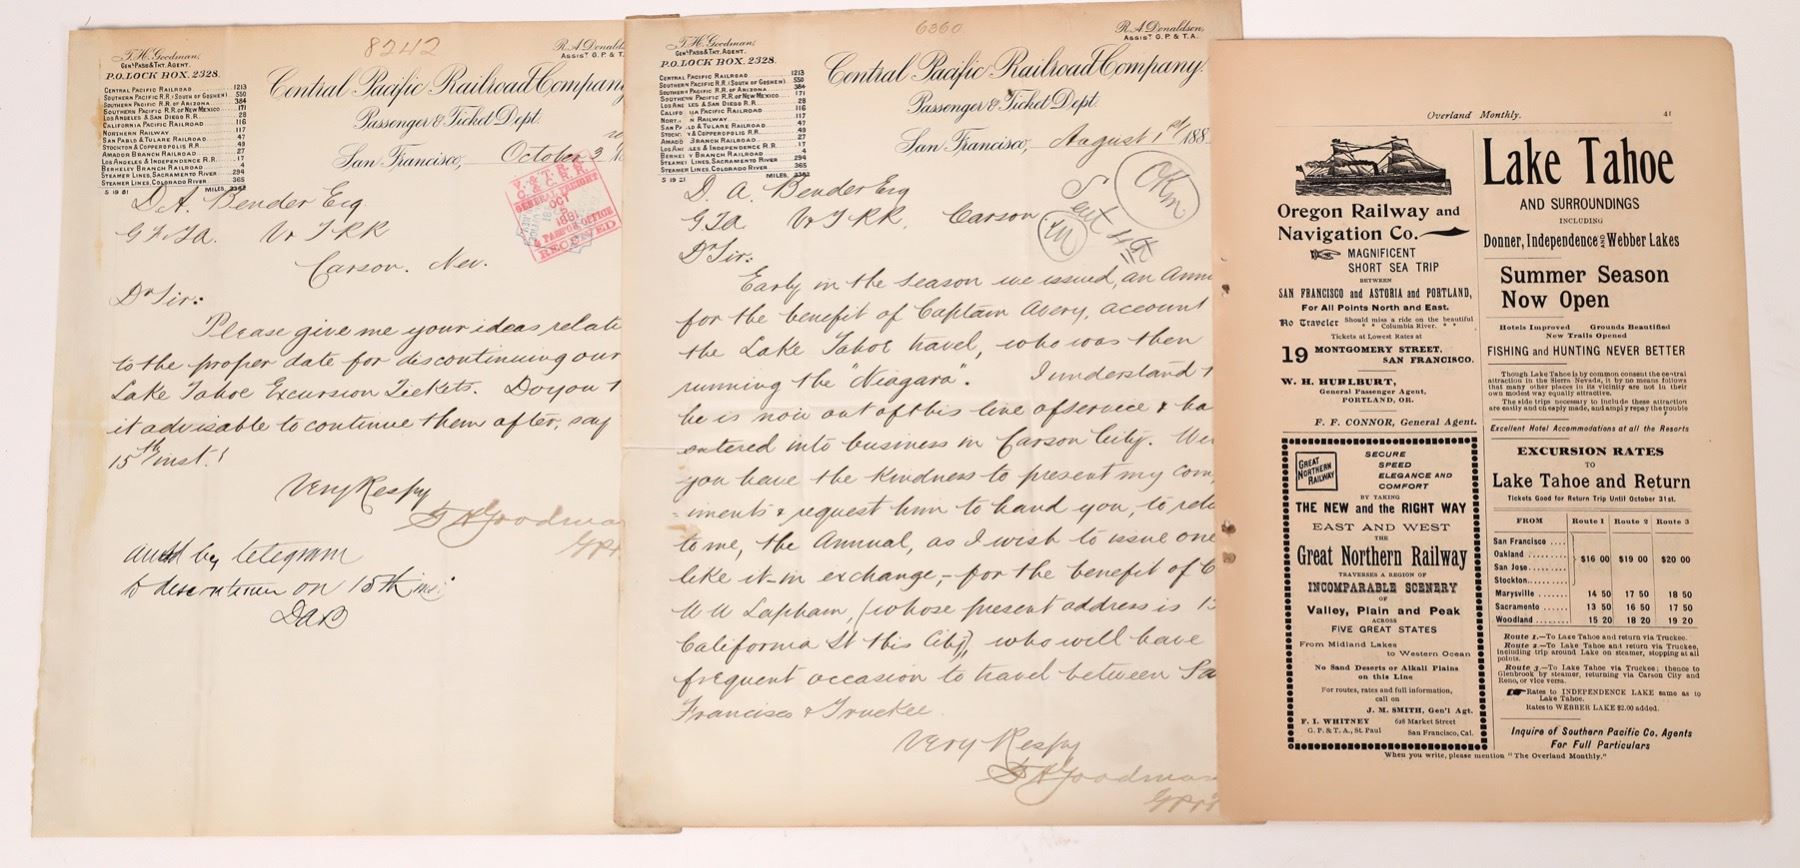 T. H. Goodman,
Gen'l Pass & Tkt. Agent.
P.O. LOCK BOX. 2328.
8242
R. A. Donalds
Assist. G. P. & T.
Central Pacific Railroad Company
Passenger & Ticket Dept.
CENTRAL PACIFIC RAILROAD 1213
SOUTHERN PACIFIC R.R. (SOUTH OF GOSHEN) 550
SOUTHERN PACIFIC R.R. OF ARIZONA 384
SOUTHERN PACIFIC R.R. OF NEW MEXICO 171
LOS ANGELES & SAN DIEGO R.R. 28
CALIFORNIA PACIFIC RAILROAD 116
NORTHERN RAILWAY 117
SAN PABLO & TULARE RAILROAD 47
STOCKTON & COPPEROPOLIS R.R. 49
AMADOR BRANCH RAILROAD 27
LOS ANGELES & INDEPENDENCE R.R. 17
BERKELEY BRANCH RAILROAD 4
STEAMER LINES, SACRAMENTO RIVER 294
STEAMER LINES, COLORADO RIVER 365
MILES, 3362
San Francisco, October 3
V. & T. R. R.
C. & C. R. R.
GENERAL FREIGHT
OCT
1881
& PASS'GR OFFICE
RECEIVED
D. A. Bender Esq.
G F & TA. V & T RR
Carson. Nev.
Dr Sir:
Please give me your ideas relat
to the proper date for discontinuing our
Lake Tahoe Excursion Tickets. Do you
it advisable to continue them after, say
15th inst.!
Very Respy
T H Goodman
by telegram
on 15th
DAB
T. H. Goodman,
Gen'l Pass & Tkt. Agent.
P.O. LOCK BOX. 2328.
6360
R. A. Donaldson,
Assist. G. P. & T. A.
Central Pacific Railroad Company.
Passenger & Ticket Dept.
CENTRAL PACIFIC RAILROAD 1213
SOUTHERN PACIFIC R.R. (SOUTH OF GOSHEN) 550
SOUTHERN PACIFIC R.R. OF ARIZONA 384
SOUTHERN PACIFIC R.R. OF NEW MEXICO 171
LOS AN LES & SAN DIEGO R.R. 28
CALIFO IA PACIFIC RAILROAD 116
NORT N RAILWAY 117
SAN P LO & TULARE RAILROAD 47
STOCK N & COPPEROPOLIS R.R. 49
AMADO BRANCH RAILROAD 27
LOS A GELES & INDEPENDENCE R.R. 17
BERKEL Y BRANCH RAILROAD 4
STEAMER LINES, SACRAMENTO RIVER 294
STEAMER LINES, COLORADO RIVER 365
S 19 21 MILES, 3362
San Francisco, August 1st 188
D. A. Bender Esq
G TA V & T RR. Carson
Sent
Dr Sir:
Early in the season we issued, an Ann
for the benefit of Captain Avery, account
the Lake Tahoe travel, who was then
running the "Niagara". I understand
he is now out of this line of service & ha
entered into business in Carson City. Wi
you have the kindness to present my com
ments & request him to hand you, to retu
to me, the Annual, as I wish to issue one
like it in exchange, for the benefit of C
W W Lapham, (whose present address is 1
California St this City), who will have
frequent occasion to travel between Sa
Francisco & Truckee.
Very Respy
T H Goodman
Overland Monthly. 41
Oregon Railway and
Navigation Co.
MAGNIFICENT
SHORT SEA TRIP
BETWEEN
SAN FRANCISCO and ASTORIA and PORTLAND,
For All Points North and East.
No Traveler Should miss a ride on the beautiful
* * Columbia River. * *
Tickets at Lowest Rates at
19 MONTGOMERY STREET,
SAN FRANCISCO.
W. H. HURLBURT,
General Passenger Agent,
PORTLAND, OR.
F. F. CONNOR, General Agent.
GREAT
NORTHERN
RAILWAY
SECURE
SPEED
ELEGANCE AND
COMFORT
BY TAKING
THE NEW and the RIGHT WAY
EAST AND WEST
THE
Great Northern Railway
TRAVERSES A REGION OF
INCOMPARABLE SCENERY
OF
Valley, Plain and Peak
ACROSS
FIVE GREAT STATES
From Midland Lakes
to Western Ocean
No Sand Deserts or Alkali Plains
on this Line
For routes, rates and full information,
call on
J. M. SMITH, Gen'l Agt.
F. I. WHITNEY 628 Market Street
G. P. & T. A., St. Paul San Francisco, Cal.
Lake Tahoe
AND SURROUNDINGS
INCLUDING
Donner, Independence AND Webber Lakes
Summer Season
Now Open
Hotels Improved Grounds Beautified
New Trails Opened
FISHING and HUNTING NEVER BETTER
Though Lake Tahoe is by common consent the central
attraction in the Sierra Nevada, it by no means follows
that many other places in its vicinity are not in their
own modest way equally attractive.
The side trips necessary to include these attraction
are easily and cheaply made, and amply repay the trouble
Excellent Hotel Accommodations at all the Resorts
EXCURSION RATES
TO
Lake Tahoe and Return
Tickets Good for Return Trip Until October 31st.
FROM Route 1 Route 2 Route 3
San Francisco
Oakland
San Jose
Stockton
$16 00 $19 00 $20 00
Marysville 14 50 17 50 18 50
Sacramento 13 50 16 50 17 50
Woodland 15 20 18 20 19 20
Route 1.—To Lake Tahoe and return via Truckee.
Route 2.—To Lake Tahoe and return via Truckee,
including trip around Lake on steamer, stopping at all
points.
Route 3.—To Lake Tahoe via Truckee; thence to
Glenbrook by steamer, returning via Carson City and
Reno, or vice versa.
Rates to INDEPENDENCE LAKE same as to
Lake Tahoe.
Rates to WEBBER LAKE $2.00 added.
Inquire of Southern Pacific Co. Agents
For Full Particulars
When you write, please mention "The Overland Monthly."